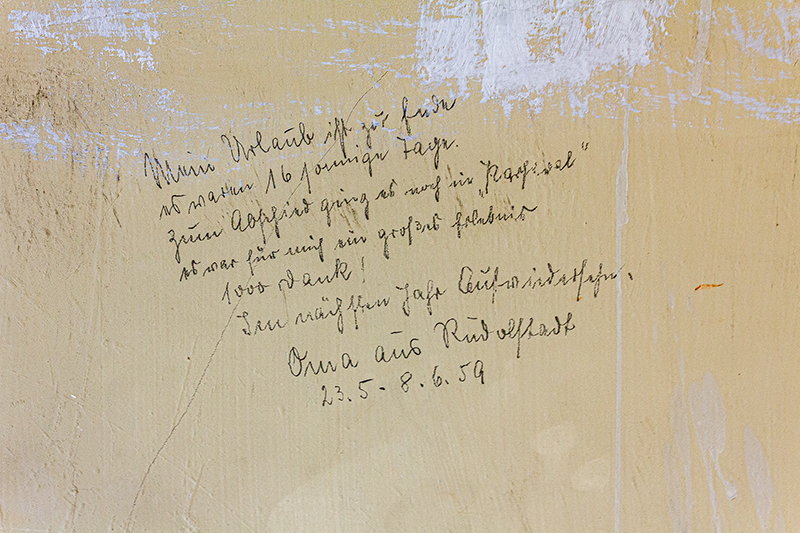 Mein Urlaub ist zu Ende
es waren 16 sonnige Tage.
Zum Abschied ging es noch in „Parsival“
es war für mich ein großes Erlebnis
1000 Dank!
Im nächsten Jahr Aufwiedersehn.
Oma aus Rudolstadt
23.5. - 8.6.59